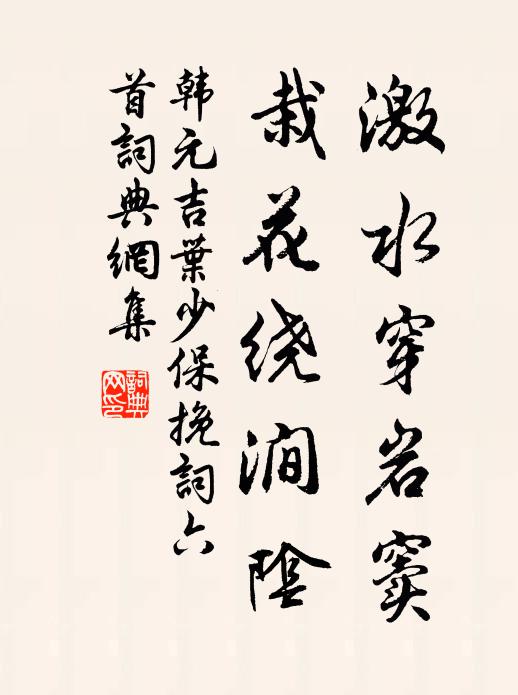 激水穿岩窦
栽花绕涧陰
韩元吉葉少保挽詞六
首詞典網集
詞典网印